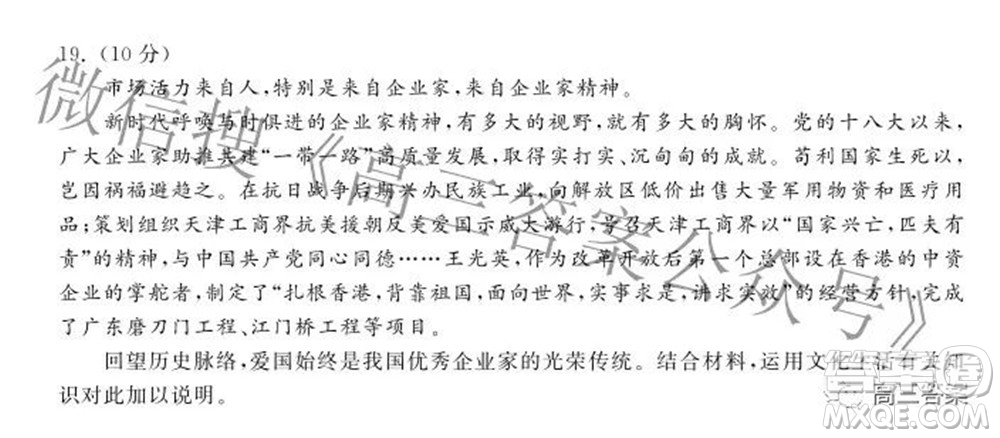 19.（10 分）
市场活力来自人，特别是来自企业家，来自企业家精神。
新时代呼唤与时俱进的企业家精神，有多大的视野，就有多大的胸怀。党的十八大以来，
广大企业家助推共建“一带一路”高质量发展，取得实打实、沉甸甸的成就。苟利国家生死以，
岂因祸福避趋之。在抗日战争后期兴办民族工业，向解放区低价出售大量军用物资和医疗用
品；策划组织天津工商界抗美援朝反美爱国示威大游行，号召天津工商界以“国家兴亡，匹夫有
责”的精神，与中国共产党同心同德……王光英，作为改革开放后第一个总部设在香港的中资
企业的掌舵者，制定了“扎根香港，背靠祖国，面向世界，实事求是，讲求实效”的经营方针，完成
了广东磨刀门工程、江门桥工程等项目。
回望历史脉络，爱国始终是我国优秀企业家的光荣传统。结合材料，运用文化生活有关知
识对此加以说明。
微信搜《高三答案公众号》
高三答案
答案圈
MXQE.COM